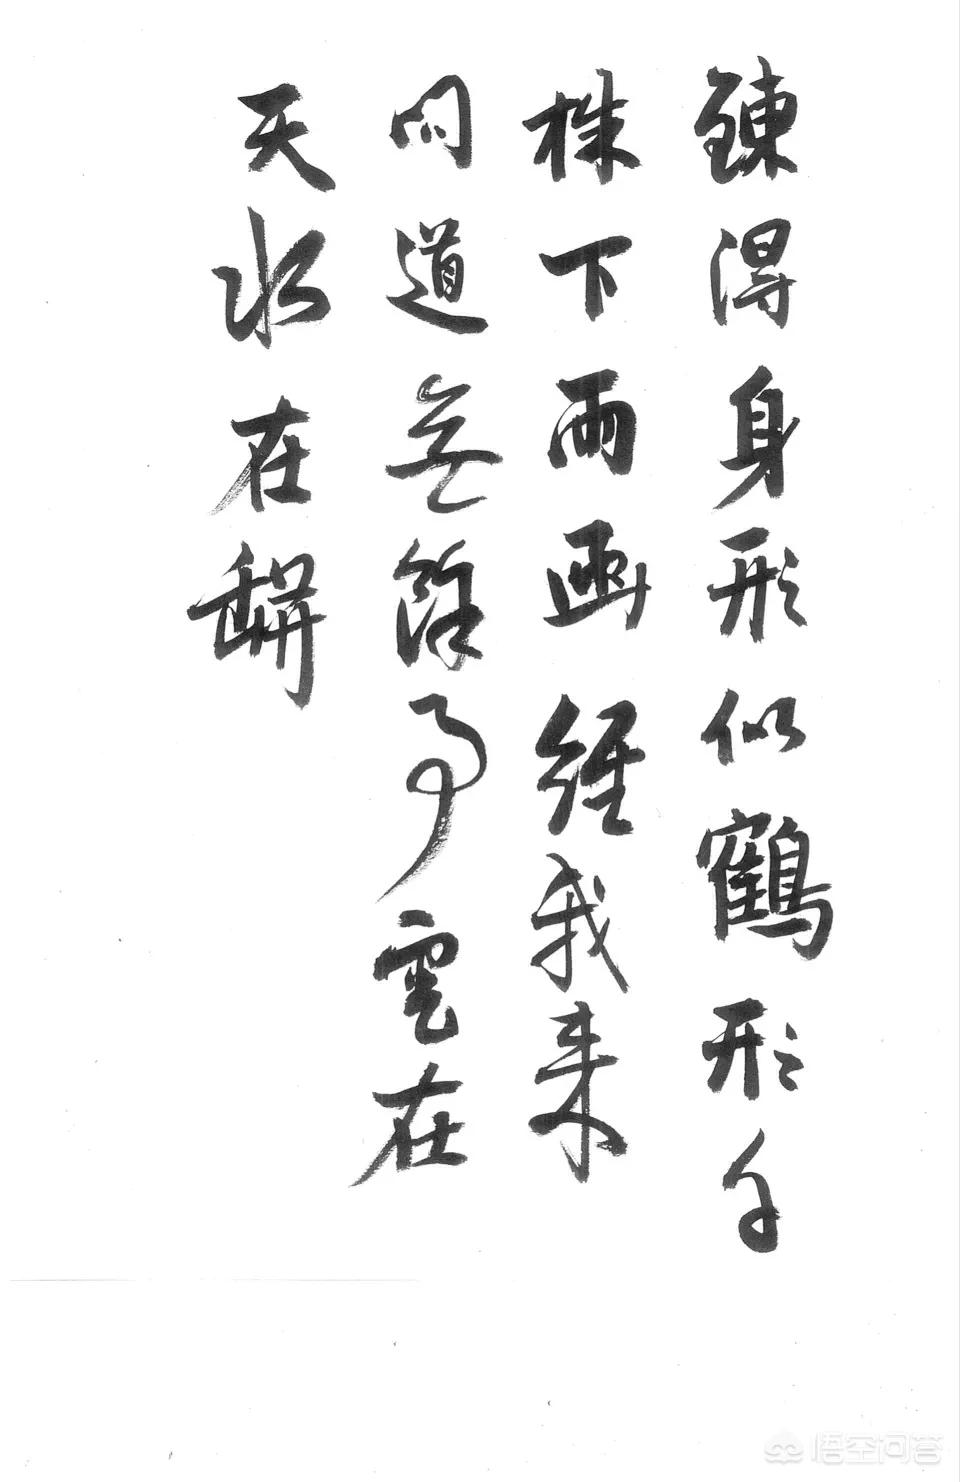 鍊得身形似鶴形千
株下兩函經我來
問道無餘事雲在
天水在缾
悟空问答